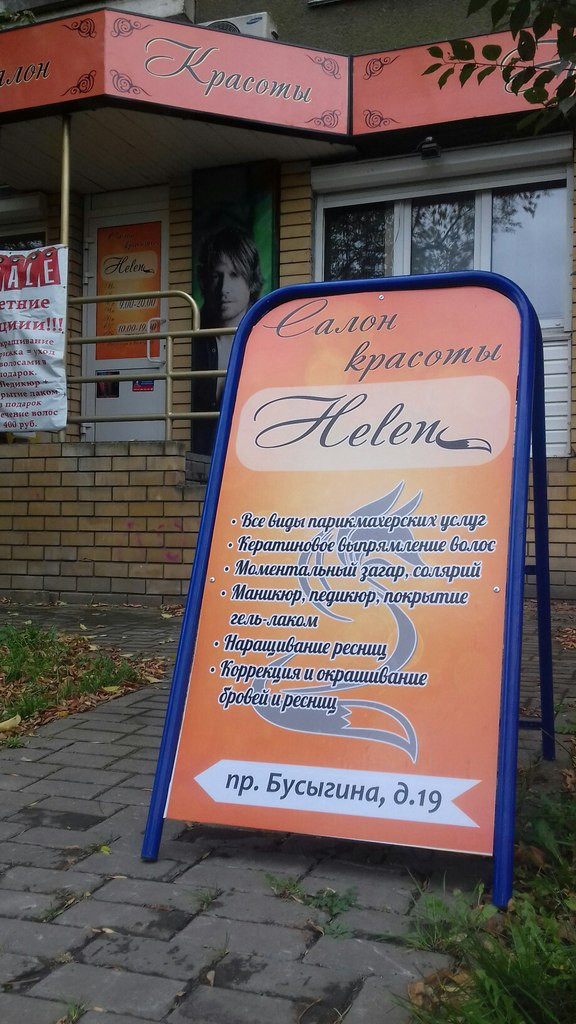 Красоты
Салон
Helen
9.00-20.00
10.00-19.00
Салон
красоты
Helen
• Все виды парикмахерских услуг
• Кератиновое выпрямление волос
• Моментальный загар, солярий
• Маникюр, педикюр, покрытие
гель-лаком
• Наращивание ресниц
• Коррекция и окрашивание
бровей и ресниц
пр. Бусыгина, д.19
подарок.
покрытие лаком
в подарок
лечение волос
400 руб.